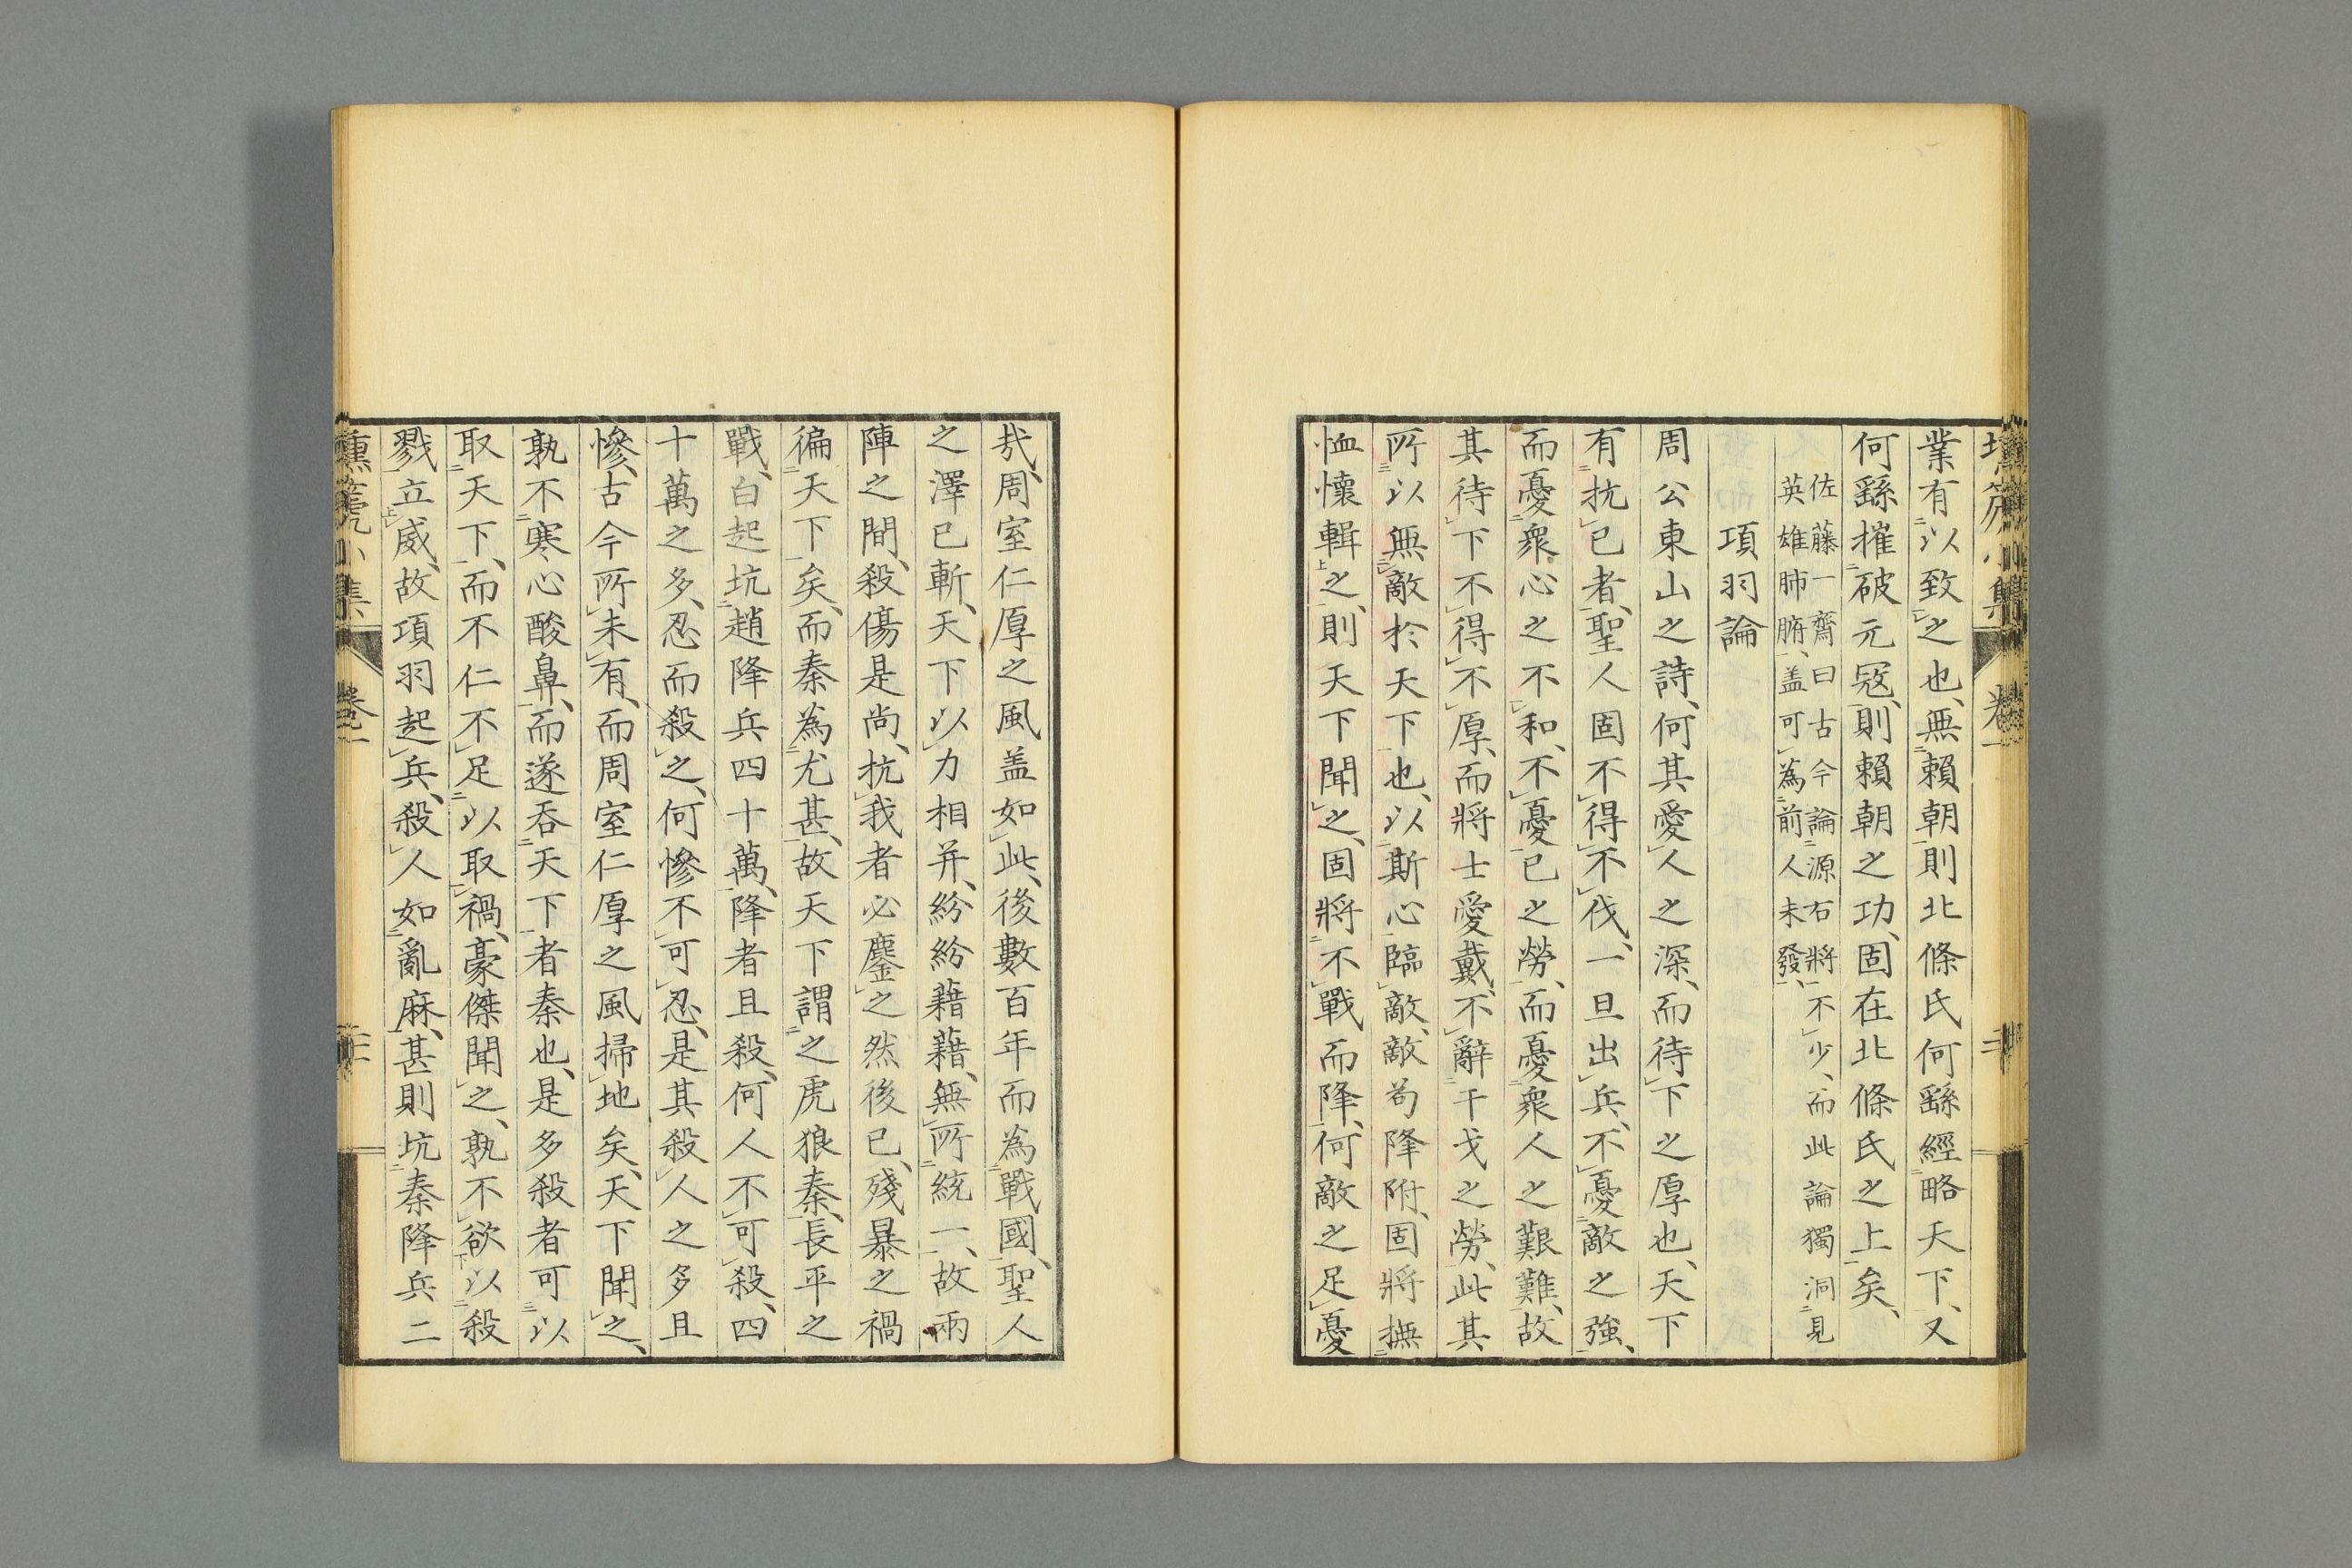 業有以致之也、無賴朝則北條氏何繇經略天下、又
何繇摧破元冦、則賴朝之功、固在北條氏之上矣、
佐藤一齋曰古今論源右將不少、而此論獨洞見
英雄肺腑、盖可為前人未發、
項羽論
周公東山之詩、何其愛人之深、而待下之厚也、天下
有抗已者、聖人固不得不伐、一旦出兵、不憂敵之強、
而憂衆心之不和、不憂已之勞、而憂衆人之艱難、故
其待下不得不厚、而將士愛戴、不辭干戈之勞、此其
所以無敵於天下也、以斯心臨敵、敵苟降附、固將撫
恤懷輯之、則天下聞之、固將不戰而降、何敵之足憂
哉、周室仁厚之風盖如此、後數百年而為戰國、聖人
之澤已斬、天下以力相并、紛紛藉藉、無所統一、故兩
陣之間、殺傷是尚、抗我者必鏖之然後已、殘暴之禍
徧天下矣、而秦為尤甚、故天下謂之虎狼秦、長平之
戰、白起坑趙降兵四十萬、降者且殺、何人不可殺、四
十萬之多、忍而殺之、何慘不可忍、是其殺人之多且
慘、古今所未有、而周室仁厚之風掃地矣、天下聞之、
孰不寒心酸鼻、而遂吞天下者秦也、是多殺者可以
取天下、而不仁不足以取禍、豪傑聞之、孰不欲以殺
戮立威、故項羽起兵、殺人如亂麻、甚則坑秦降兵二
壎篪小集 卷一 二